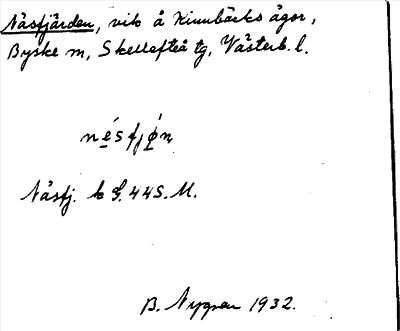 Näsfjärden, vik å Kinnbäcks ägor,
Byske sn, Skellefteå tg, Västerb. l.
nésfjǿn
Näsfj. k G. 44 S. M.
B. Nygren 1932.